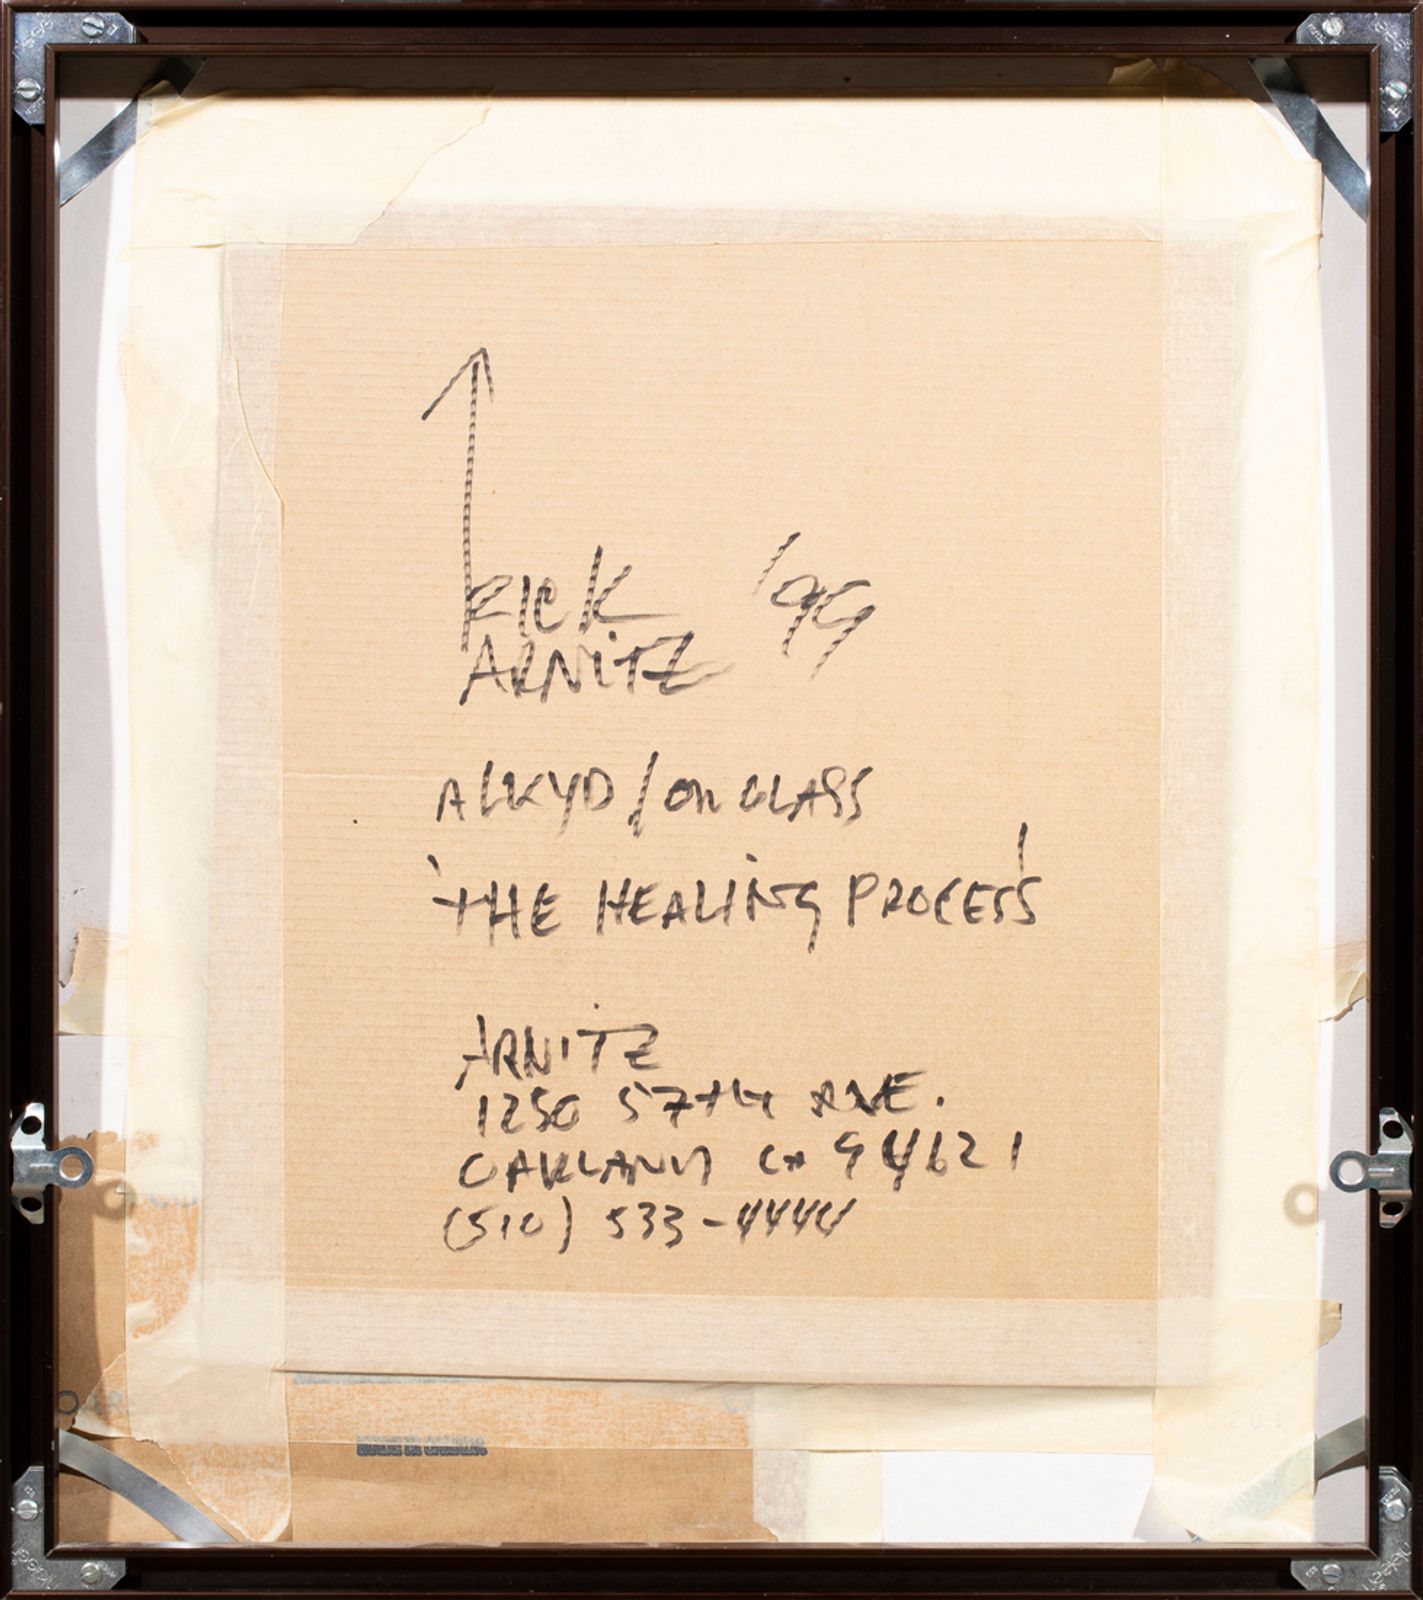 RICK '99
ARNITZ
ALKYD/on GLASS
'THE HEALING PROCESS'
ARNITZ
1250 57TH AVE.
OAKLAND CA 94621
(510) 533-4444